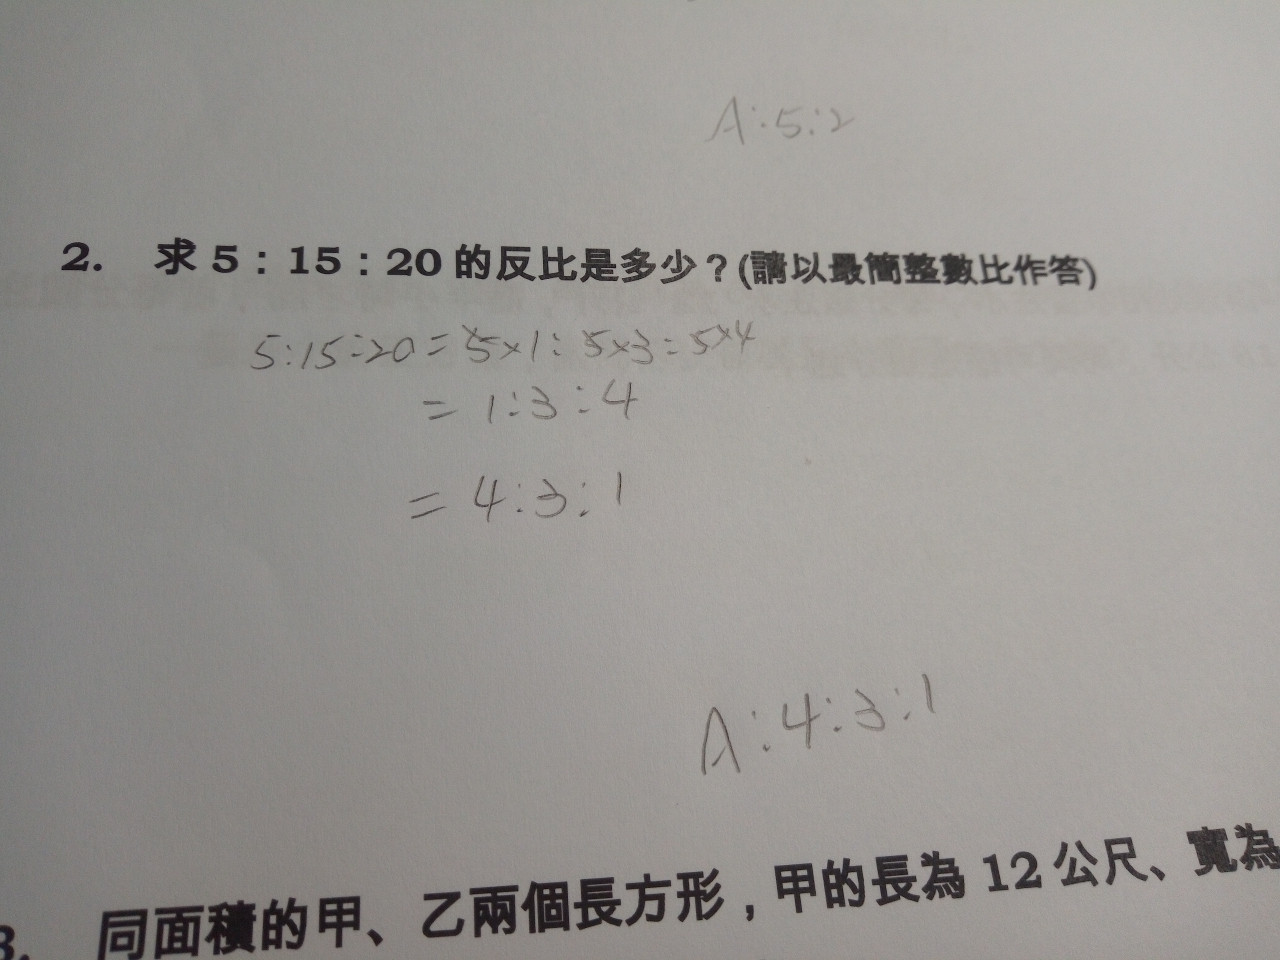 A:5:2
2. 求 5：15：20 的反比是多少？(請以最簡整數比作答)
5:15:20=5×1:5×3:5×4
=1:3:4
=4:3:1
A:4:3:1
3. 同面積的甲、乙兩個長方形，甲的長為 12 公尺、寬為